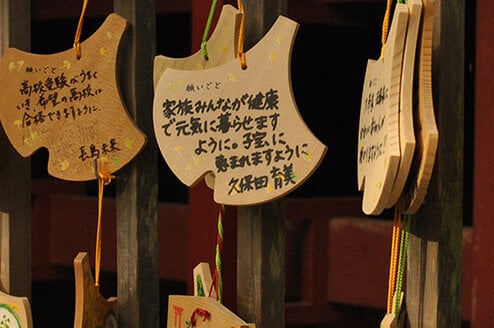 願いごと
高校受験がうまく
いき、希望の高校に
合格できますように。
長島 未来
願いごと
家族みんなが健康
で元気に暮らせます
ように。子宝に
恵まれますように
久保田 育美